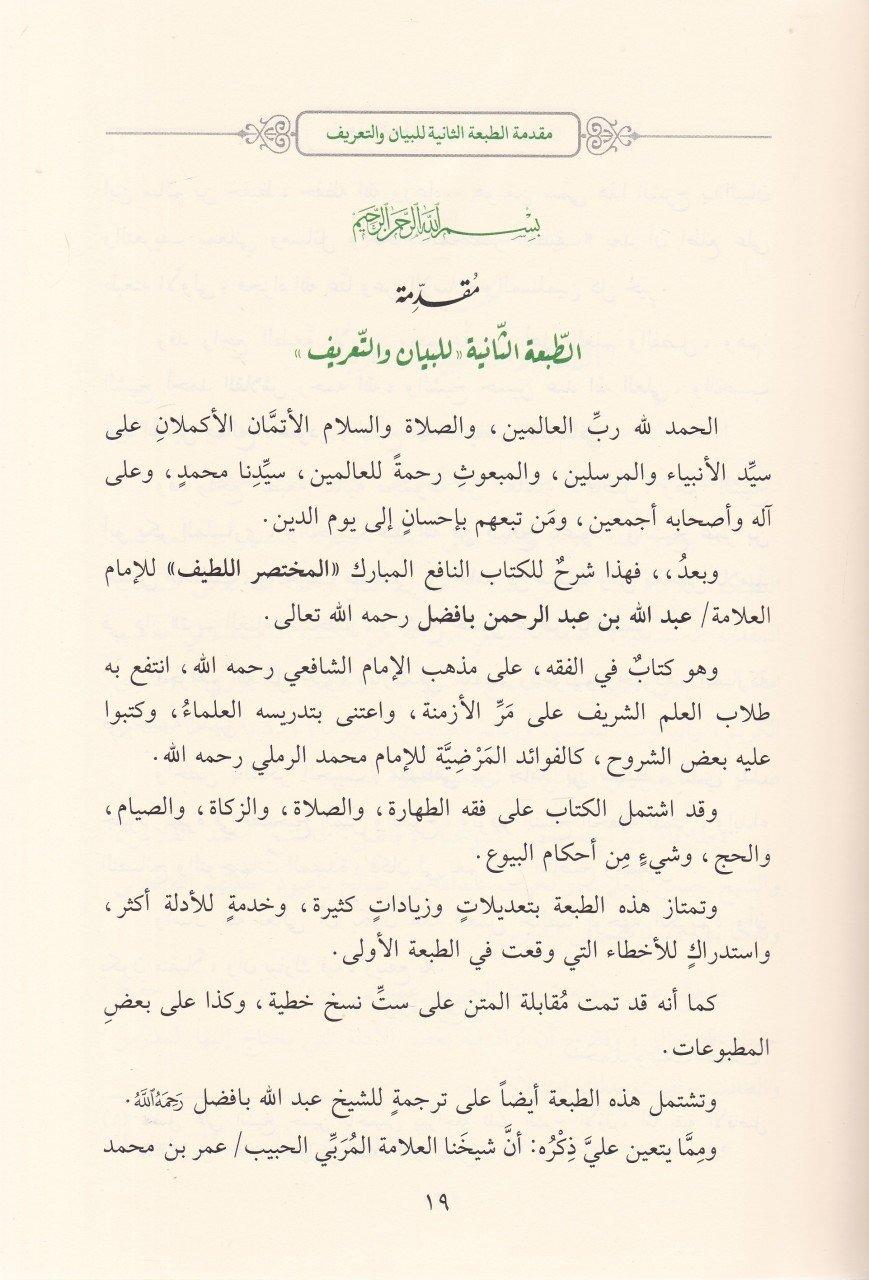 مقدمة الطبعة الثانية للبيان والتعريف
بِسْمِ اللَّهِ الرَّحْمَنِ الرَّحِيمِ
مُقدِّمة
الطّبعة الثّانية «للبيان والتّعريف»
الحمد لله ربِّ العالمين، والصلاة والسلام الأتمَّان الأكملانِ على
سيِّد الأنبياء والمرسلين، والمبعوثِ رحمةً للعالمين، سيِّدِنا محمدٍ، وعلى
آله وأصحابه أجمعين، ومَن تبعهم بإحسانٍ إلى يوم الدين.
وبعدُ،، فهذا شرحٌ للكتاب النافع المبارك «المختصر اللطيف» للإمام
العلامة/ عبد الله بن عبد الرحمن بافضل رحمه الله تعالى.
وهو كتابٌ في الفقه، على مذهب الإمام الشافعي رحمه الله، انتفع به
طلاب العلم الشريف على مَرِّ الأزمنة، واعتنى بتدريسه العلماءُ، وكتبوا
عليه بعض الشروح، كالفوائد المَرْضِيَّة للإمام محمد الرملي رحمه الله.
وقد اشتمل الكتاب على فقه الطهارة، والصلاة، والزكاة، والصيام،
والحج، وشيءٍ مِن أحكام البيوع.
وتمتاز هذه الطبعة بتعديلاتٍ وزياداتٍ كثيرة، وخدمةٍ للأدلة أكثر،
واستدراكٍ للأخطاء التي وقعت في الطبعة الأولى.
كما أنه قد تمت مُقابلة المتن على ستِّ نسخ خطية، وكذا على بعضِ
المطبوعات.
وتشتمل هذه الطبعة أيضاً على ترجمةٍ للشيخ عبد الله بافضل رَحِمَهُ ٱللَّهُ.
ومِمَّا يتعين عليَّ ذِكْرُه: أنَّ شيخَنا العلامة المُرَبِّي الحبيب/ عمر بن محمد
١٩